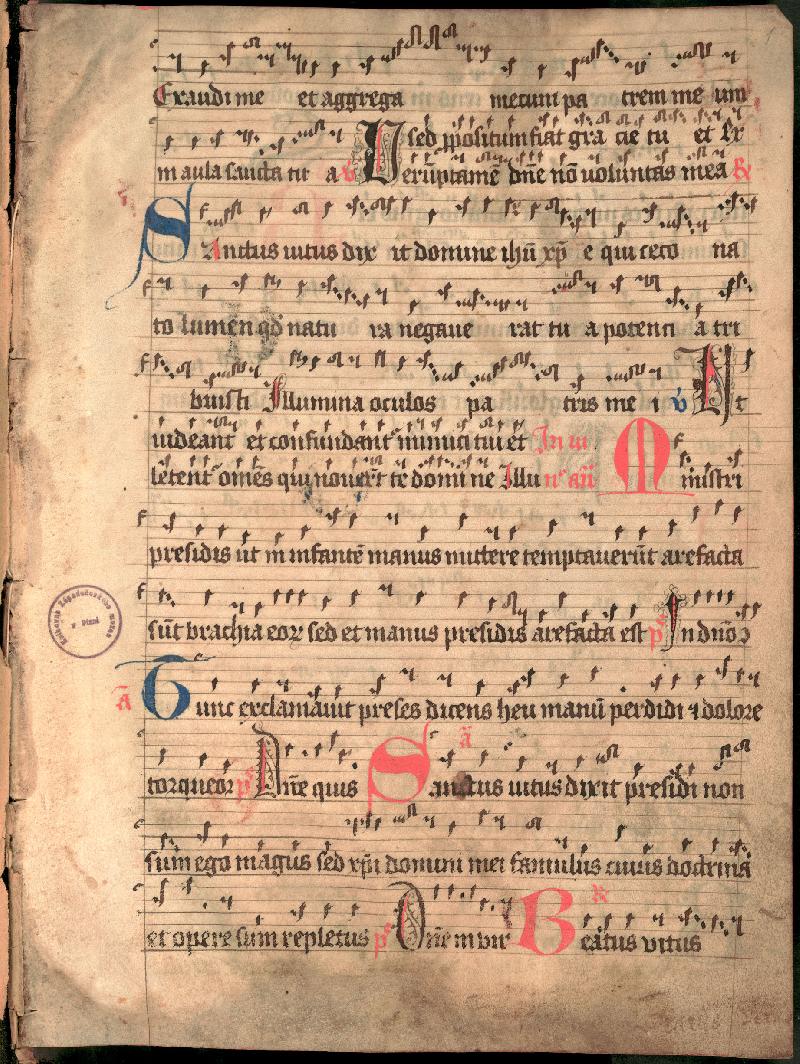 Exaudi me et aggrega mecum pa trem me um
sed ppositum fiat gra cie tu et Ex
in aula sancta tu a v Veruptamē dne nō uoluntas mea R
SAnctus uitus dix it domine ihū xp e qui ceco na
to lumen qd natu ra negaue rat tu a potenti a tri
buisti Illumina oculos pa tris me i v Ut
uideant et confundant inimici tui et In iii
letent omēs qui nouert te domi ne Illu nc añ Ministri
presidis ut in infantē manus mittere temptauerūt arefacta
sūt brachia eoꝝ sed et manus presidis arefacta est ps In dnō
ā Tunc exclamauit preses dicens heu manū perdidi ⁊ dolore
ā
torqueor ps Dñe quis Sanctus uitus dixit presidi non
sum ego magus sed xpi domini mei famulus cuius doctrina
R
et opere sum repletus ps Dñe in uir Beatus vitus
v Plzni